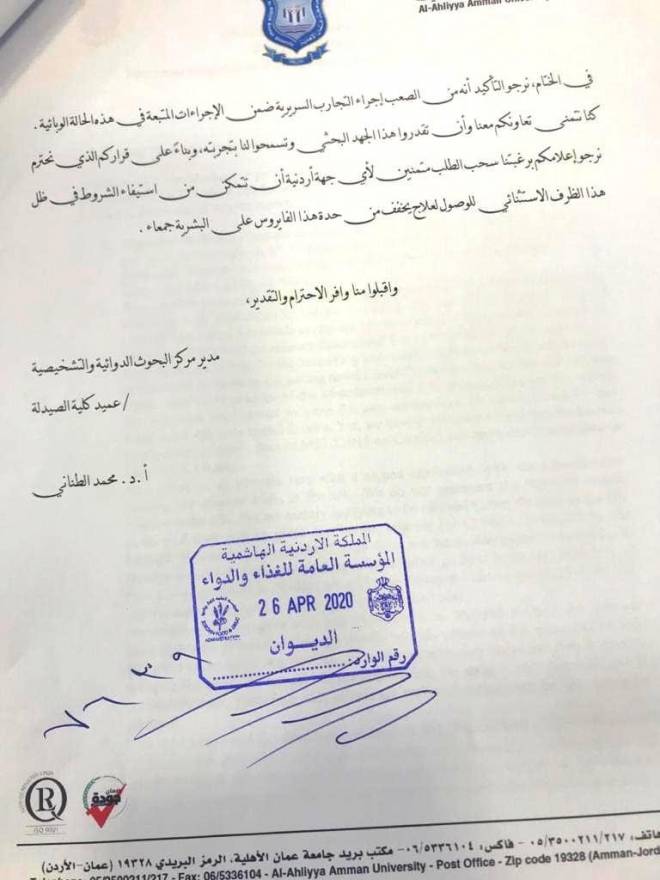 Al-Ahliyya Amman
في الختام، نرجو التأكيد أنه من الصعب إجراء التجارب السريرية ضمن الإجراءات المتبعة في هذه الحالة الوبائية.
كنا نتمنى تعاونكم معنا وأن تقدروا هذا الجهد البحثي وتسمحوا لنا بتجربته، وبناءً على قراركم الذي نحترم
نرجو إعلامكم برغبتنا سحب الطلب متمنين لأي جهة أردنية أن تتمكن من استيفاء الشروط في ظل
هذا الظرف الاستثنائي للوصول لعلاج يخفف من حدة هذا الفايروس على البشرية جمعاء.
واقبلوا منا وافر الاحترام والتقدير،
مدير مركز البحوث الدوائية والتشخيصية
/عميد كلية الصيدلة
أ.د. محمد الطناني
المملكة الاردنية الهاشمية
المؤسسة العامة للغذاء والدواء
26 APR 2020
الديـوان
رقم الوارد:
ISO 9001
جودة
هاتف: ٠٥/٣٥٠٠٢١١/٢١٧ - فاكس: ٠٦/٥٣٣٦١٠٤ - مكتب بريد جامعة عمان الأهلية، الرمز البريدي ١٩٣٢٨ (عمان-الأردن)
05/3500211/217 - Fax: 06/5336104 - Al-Ahliyya Amman University - Post Office - Zip code 19328 (Amman-Jord